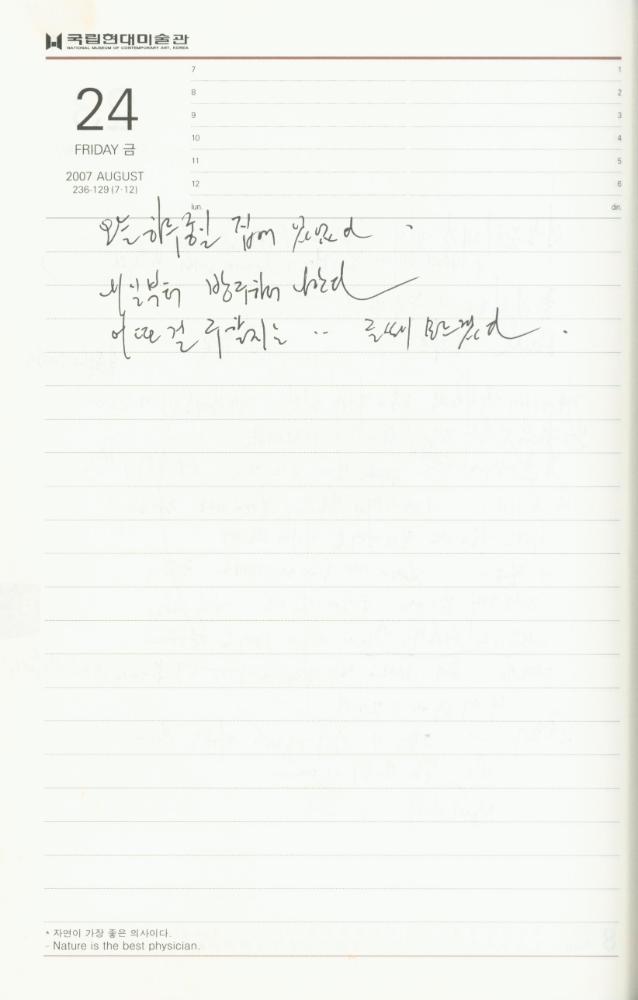 국립현대미술관
NATIONAL MUSEUM OF CONTEMPORARY ART, KOREA
24
FRIDAY 금
2007 AUGUST
236-129 (7·12)
7 1
8 2
9 3
10 4
11 5
12 6
lun. din.
오늘 하루종일 집에 있었다.
내일부터 방
어떤 걸 .. 글쎄 모르겠다.
* 자연이 가장 좋은 의사이다.
- Nature is the best physician.